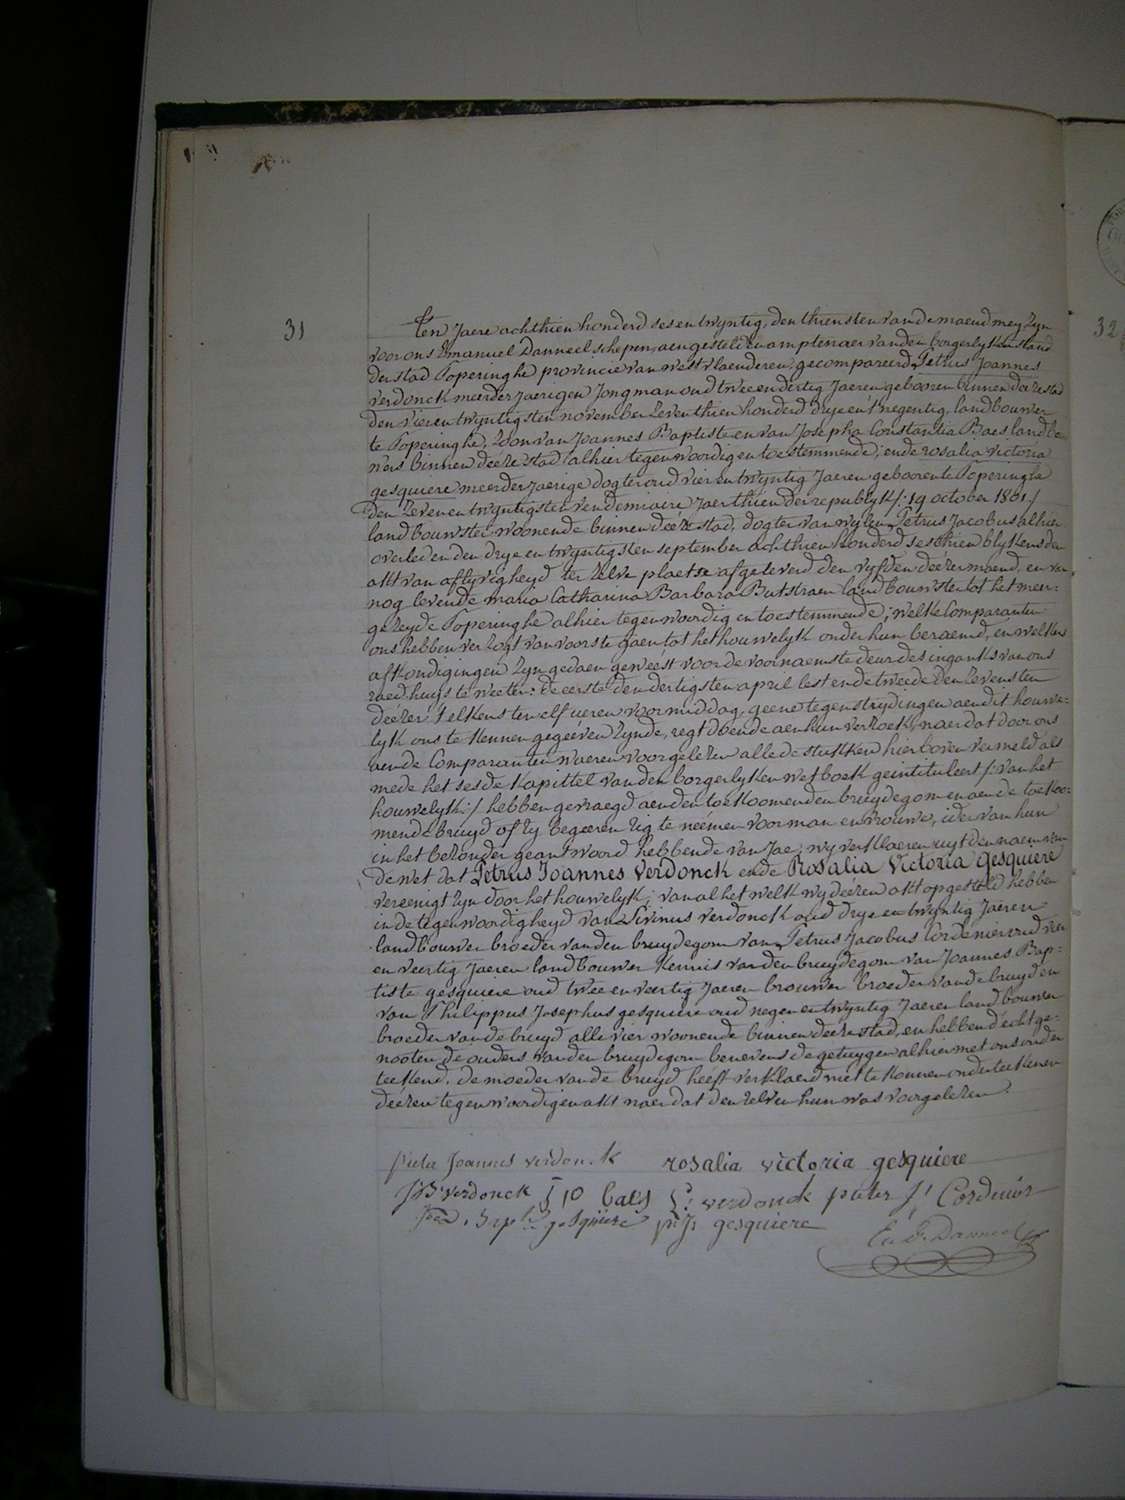 31
Ten Jaere achthien honderd ses en twyntig, den thiensten van de maend mey zyn
voor ons Emanuel Danneel schepen, aengesteld en amptenaer van den borgerlyken stand
der stad Poperinghe provincie van westvlaenderen, gecompareerd Petrus Joannes
Verdonck meerderjaerigen Jongman oud twee en dertig Jaeren gebooren binnen deéze stad
den vier en twyntigsten november zeventhien honderd drye en t'negentig, landbouwer
te Poperinghe, zoon van Joannes Baptiste en van Josepha Constantia Baes landbou-
wers binnen deéze stad alhier tegenwoordig en toestemmende, ende rosalia victoria
gesquiere meerderjaerige dogter oud vier en twyntig Jaeren gebooren te Poperinghe
den zeven en twyntigsten vendemiaire Jaer thien der republyk /: 19 october 1801 :/
landbouwster woonende binnen deéze stad, dogter van wylen Petrus Jacobus alhier
overleden den drye en twyntigsten september achthien honderd sesthien blykens den
akt van aflyvigheyd ter zelve plaetse afgeleverd den vyfden deézer maend, en van
nog levende maria Catharina Barbara Butstraen landbouwster tot het meer-
gezeyde Poperinghe alhier tegenwoordig en toestemmende; welke Comparanten
ons hebben verzogt van voorts te gaen tot het houwelyk onder hun beraemd, en welkers
afkondigingen zyn gedaen geweest voor de voornaemste deur des ingangs van ons
raedhuys te weeten: de eerste den dertigsten april lest en de tweede den zevensten
deézer telkens ten elf ueren voormiddag, geene tegenstrydingen aen dit houwe-
lyk ons te kennen gegeéven zynde, regt doende aen hun verzoek, naer dat door ons
aen de Comparanten waeren voorgelezen alle de stukken hier boven vermeld als
mede het sesde kapittel van den borgerlyken wetboek geintituleert /: van het
houwelyk :/ hebben gevraegd aen den toekoomenden bruydegom en aen de toekoo-
mende bruyd of zy begeeren zig te neémen voor man en vrouwe, ider van hun
in het bezonder geantwoord hebbende van Jae, wy verklaeren uyt den naem van
de wet dat Petrus Joannes Verdonck ende Rosalia Victoria Gesquiere
vereenigt zyn door het houwelyk; van al het welk wy deézen akt opgesteld hebben
in de tegenwoordigheyd van Livinus verdonck oud drye en twyntig Jaeren
landbouwer broeder van den bruydegom van Petrus Jacobus Cordenier oud vier
en veertig Jaeren landbouwer kennis van den bruydegom van Joannes Bap-
tiste gesquiere oud twee en veertig Jaeren brouwer broeder van de bruyd en
van Philippus Josephus gesquiere oud negen en twyntig Jaeren landbouwer
broeder van de bruyd alle vier woonende binnen deéze stad, en hebben d'echtge-
nooten, de ouders van den bruydegom benevens de getuygen alhier met ons onder
teekend, de moeder van de bruyd heéft verklaerd niet te konnen onderteekenen
deézen tegenwoordigen akt naer dat den zelven hun was voorgelezen.
Pieter Joannes verdonck rosalia victoria gesquiere
JB verdonck Baes L: verdonck pieter J: Cordenier
gesquiere ph: J: gesquiere
Em F. Danneel
32